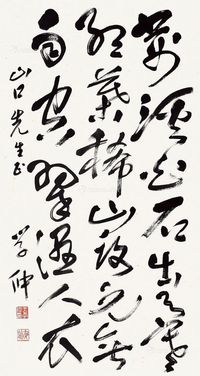 荆溪白石出天寒
紅葉稀山路元無
雨空翠濕人衣
山口先生正
学仲